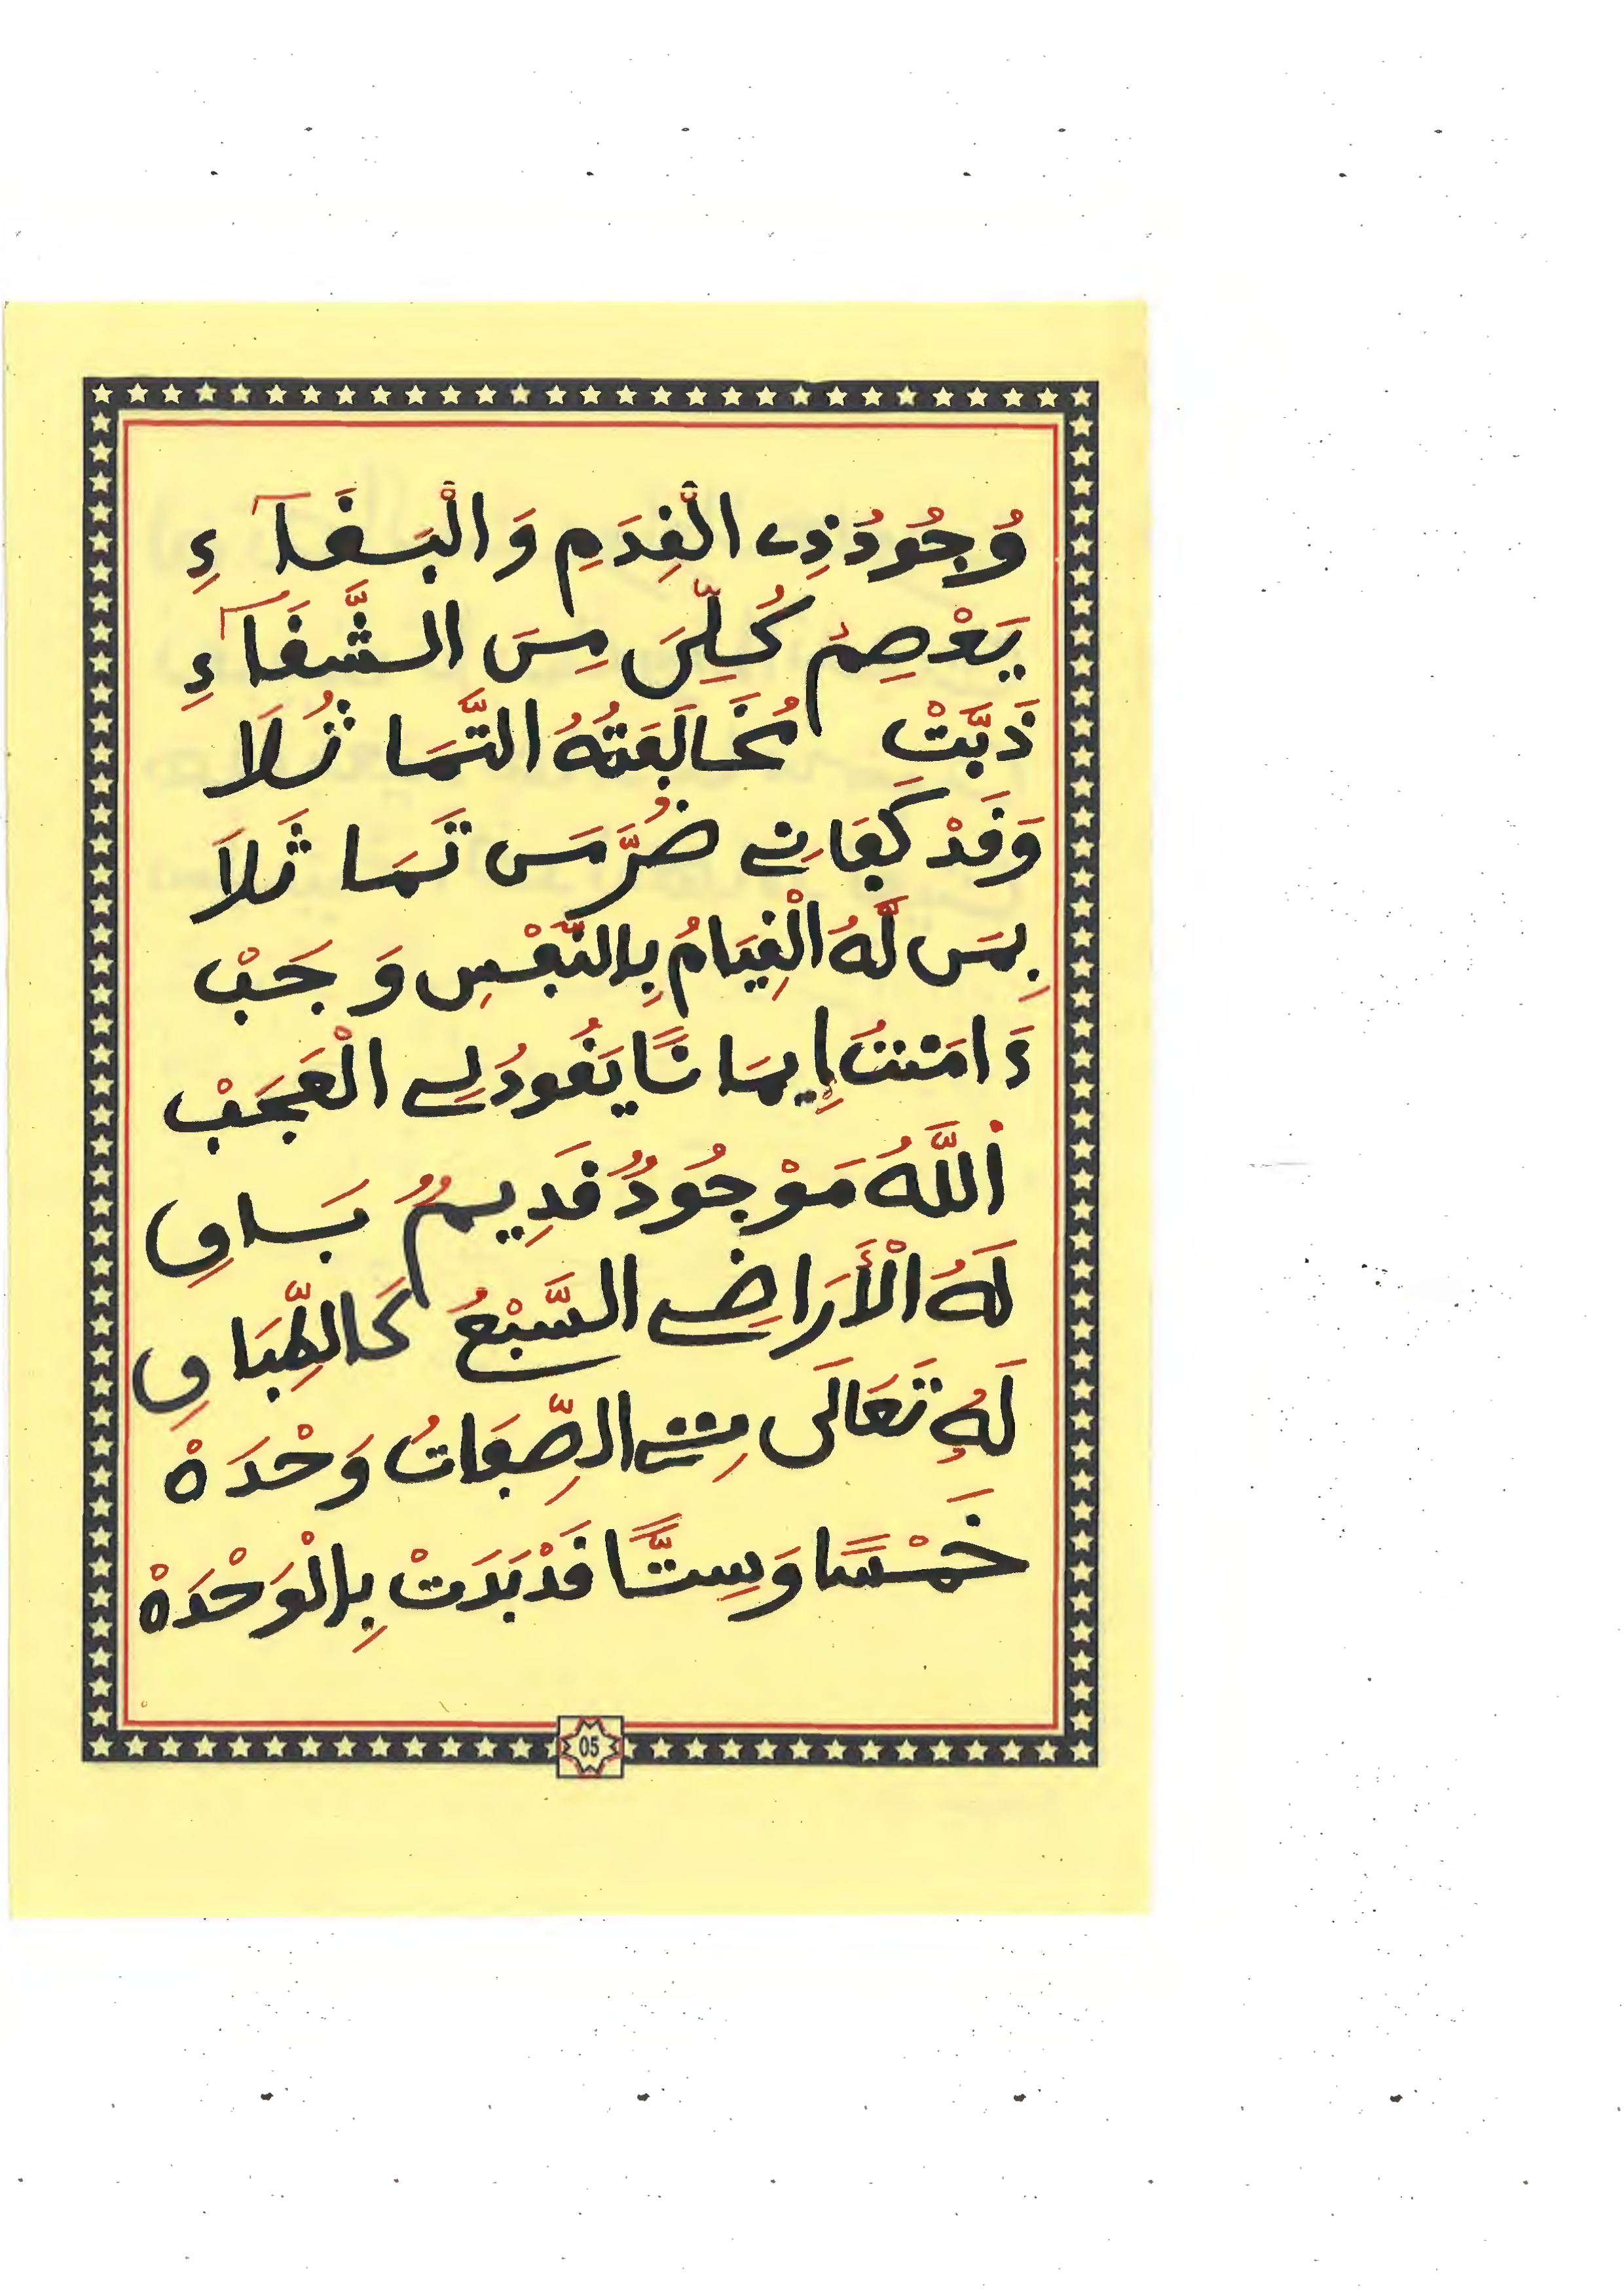 وُجُودُ ذِي الْقِدَمِ وَالْبَقَآءِ
يَعْصِمُ كُلِّيَ مِنَ الشَّقَآءِ
ذَبَّتْ مُخَالَفَتُهُ التَّمَاثُلَا
وَقَدْ كَفَانِي ضُرَّ مَن تَمَاثَلَا
بِمَن لَّهُ الْقِيَامُ بِالنَّفْسِ وَجَبْ
ءَامَنتُ إِيمَانًا يَقُودُ لِي الْعَجَبْ
اَللَّهُ مَوْجُودٌ قَدِيمٌ بَاقِ
لَهُ الْأَرَاضِي السَّبْعُ كَالطِّبَاقِ
لَهُ تَعَالَى مِنَ الصِّفَاتُ وَحْدَهْ
خَمْسًا وَسِتًّا قَدْ بَدَتْ بِالْوَحْدَهْ
05